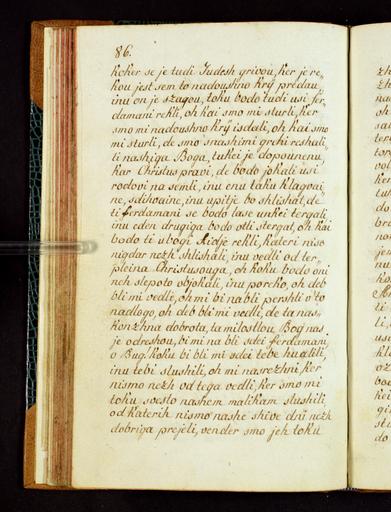 86.
koker se je tudi Iudesh grivou, ker je re-
kou jest sem to nadoushno kry predau,
inu on je szagou, toku bodo tudi usi fer-
damani rekli, oh kai smo mi sturli, ker
smo mi nadoushno kry isdali, oh kai smo
mi sturli, de smo snashimi grehi reshali,
ti nashiga Boga, tukei je dopounenu,
kar Christus pravi, de bodo jokali usi
rodovi na semli, inu enu taku klagoai-
ne, sdihoaine, inu upitje bo shlishat, de
ti ferdamani se bodo lase unkei tergali,
inu eden drugiga bodo otli stergat, oh kai
bodo ti ubogi Aidje rekli, kateri niso
nigdar nezh shlishali, inu vedli od ter-
pleina Christusouga, oh koku bodo oni
neh slepoto objokali, inu porko, oh deb
bli mi vedli, oh mi bi na bli pershli v to
nadlogo, oh deb bli mi vedli, de ta nas-
konzhna dobrota, ta milostlou Bog nas
je odreshou, bi mi na bli sdei ferdamani,
o Bug! koku bi bli mi sdei tebe hualili,
inu tebi slushili, oh mi nasrezhni ker
nismo nezh od tega vedli, ker smo mi
toku svesto nashem malikam slushili
od katerih nismo nashe shive dni nezh
dobriga prejeli, vender smo jeh toku